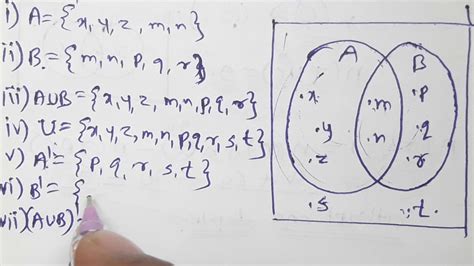 i) A = {x, y, z, m, n}
ii) B = {m, n, p, q, r}
iii) A∪B = {x, y, z, m, n, p, q, r}
iv) U = {x, y, z, m, n, p, q, r, s, t}
v) A' = {p, q, r, s, t}
vi) B' = {
vii) (A∪B)
A B
.x .m .p
.y .n .q
.z .r
.s .t